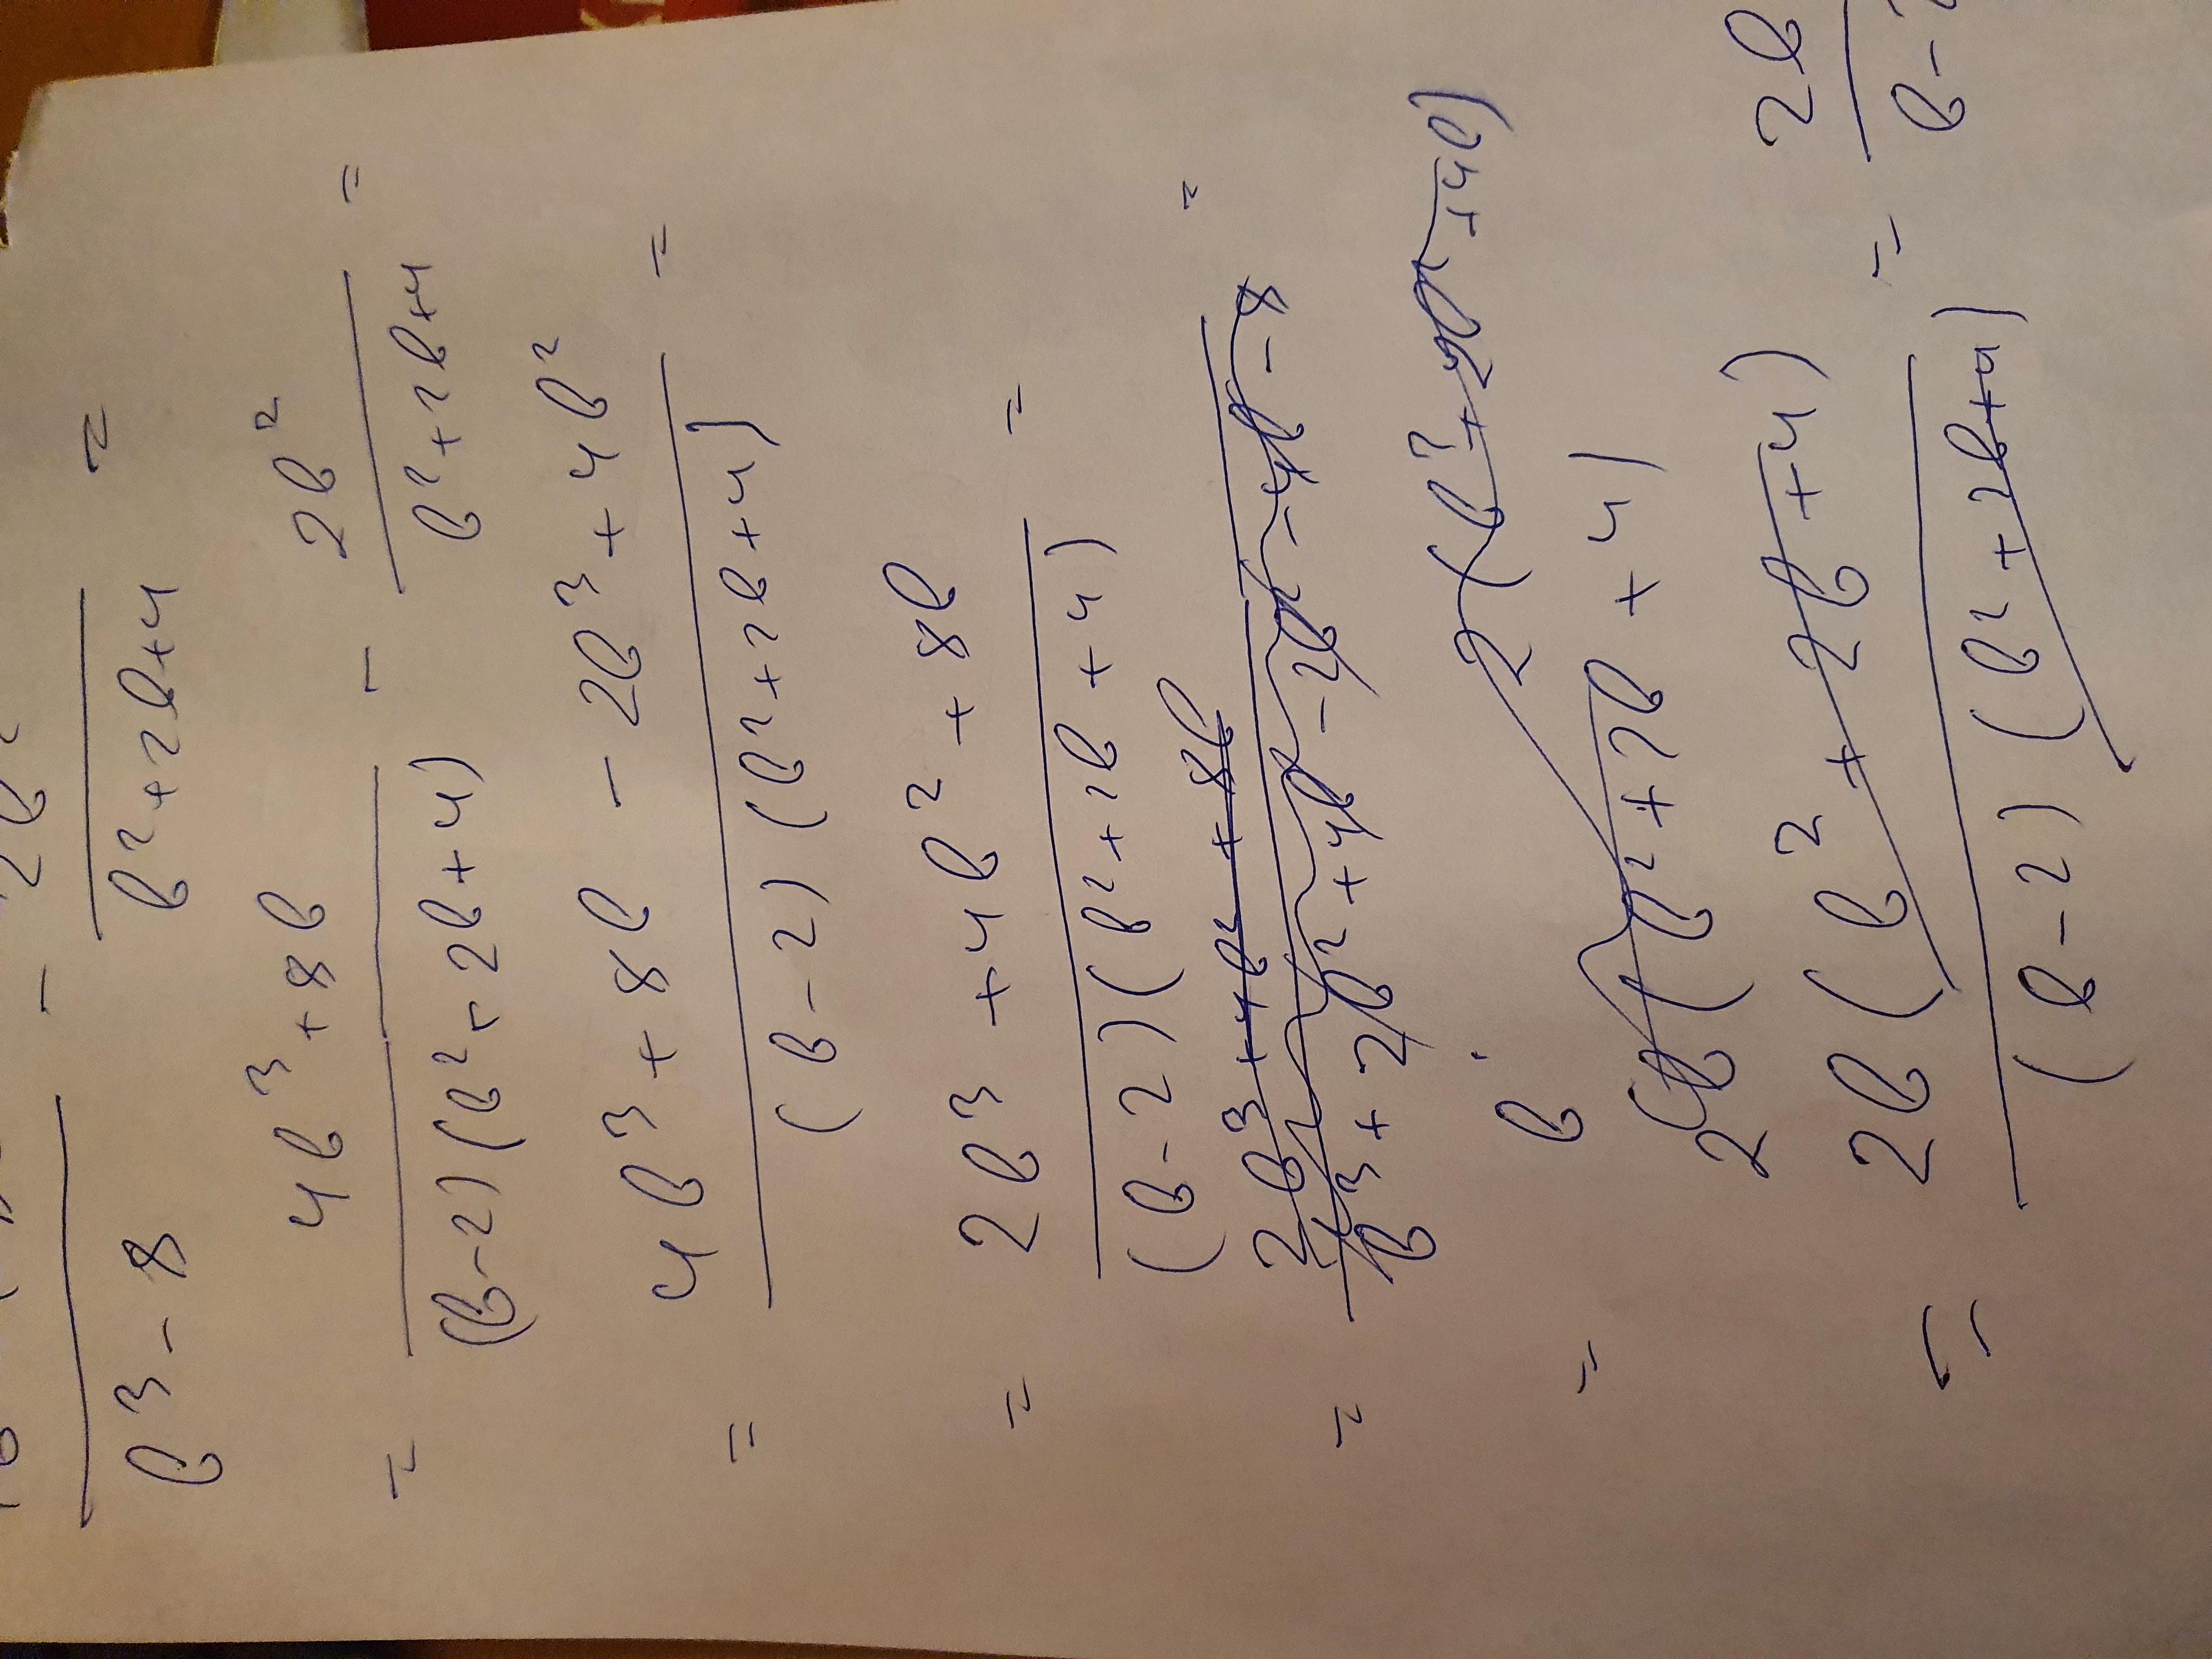 b³ - 8
b² + 2b + 4 =
= 4b³ + 8b / (b - 2)(b² + 2b + 4) - 2b² / b² + 2b + 4 =
= 4b³ + 8b - 2b³ + 4b² / (b - 2)(b² + 2b + 4) =
= 2b³ + 4b² + 8b / (b - 2)(b² + 2b + 4) =
= 2b³ + 4b² + 8b / b³ + 2b² + 4b - 2b² - 4b - 8 =
= 2b(b² + 2b + 4)
= 2b(b² + 2b + 4) / (b - 2)(b² + 2b + 4) = 2b / b -